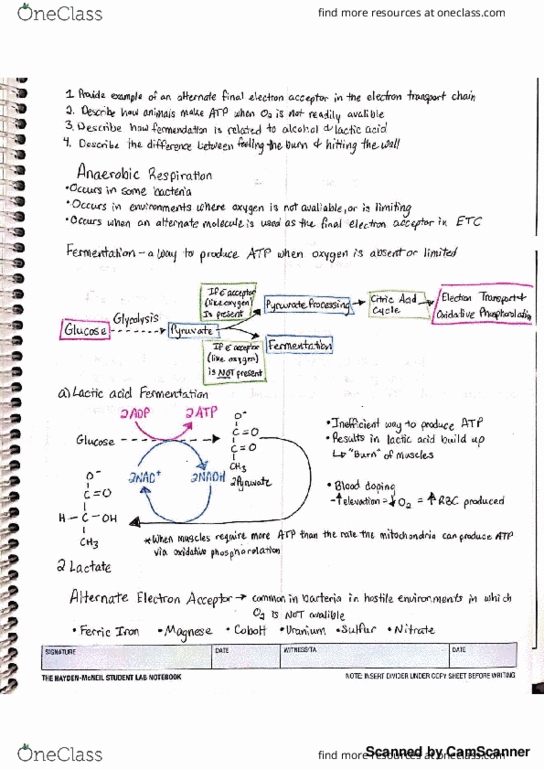 OneClass
find more resources at oneclass.com
1. Provide example of an alternate final electron acceptor in the electron transport chain
2. Describe how animals make ATP when O₂ is not readily avalible
3. Describe how fermendation is related to alcohol & lactic acid
4. Describe the difference between feeling the burn & hitting the wall
Anaerobic Respiration
•Occurs in some bacteria
•Occurs in environments where oxygen is not avaliable, or is limiting
•Occurs when an alternate molecule is used as the final electron acceptor in ETC
Fermentation - a way to produce ATP when oxygen is absent or limited
If e⁻ acceptor
(like oxygen)
Is present
Glucose
Glycolysis
Pyruvate
Pyruvate Processing
Citric Acid
Cycle
Electron Transport +
Oxidative Phosphorolation
Fermentation
If e⁻ acceptor
(like oxygen)
is NOT present
a) Lactic acid Fermentation
2ADP
2ATP
Glucose
O⁻
C=O
C=O
CH₃
2Pyruvate
2NAD⁺
2NADH
O⁻
C=O
H-C-OH
CH₃
2 Lactate
•Inefficient way to produce ATP
•Results in lactic acid build up
↳ "Burn" of muscles
•Blood doping
-↑elevation = ↓O₂ = ↑RBC produced
*When muscles require more ATP than the rate the mitochondria can produce ATP
via oxidative phosphorolation
Alternate Electron Acceptor → common in bacteria in hostile environments in which
O₂ is NOT avalible
•Ferric Iron •Magnese •Cobolt •Uranium •Sulfur •Nitrate
SIGNATURE
DATE
WITNESS/TA
DATE
THE HAYDEN-McNEIL STUDENT LAB NOTEBOOK
NOTE: INSERT DIVIDER UNDER COPY SHEET BEFORE WRITING
OneClass
find more resources at oneclass.com
Scanned by CamScanner